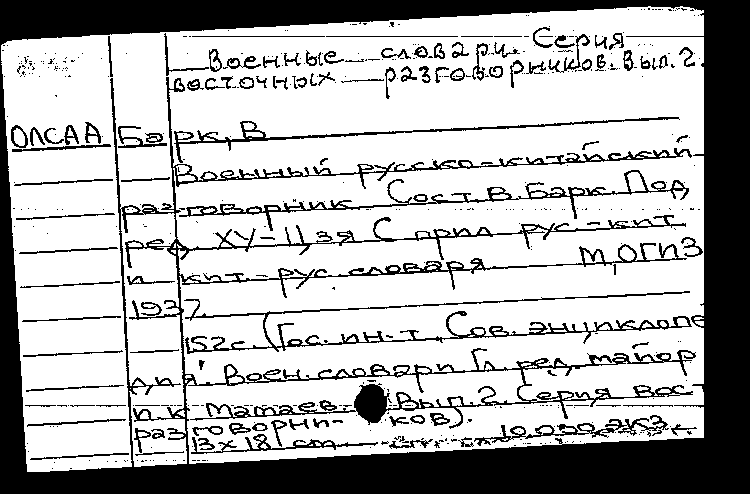 Военные словари. Серия
восточных разговорников. Вып. 2.
ОЛСАА Барк, В
Военный русско-китайский
разговорник Сост. В. Барк. Под
ред. ХУ-Ц,зя С прил рус-кит
и кит-рус. словаря М, ОГИЗ
1937.
152с. (Гос. ин-т „Сов. энциклопе
дия". Воен. словари Гл. ред. майор
п.к Матаев. Вып. 2. Серия вост
разговорни-ков).
13х18 cm 10.000 экз.